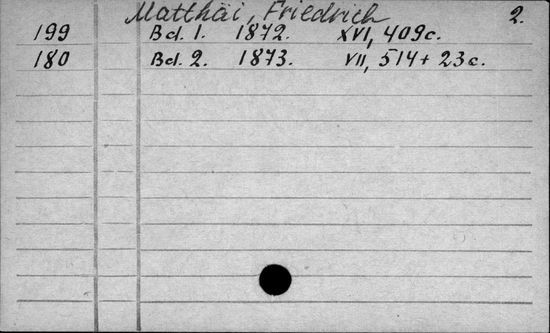 Matthäi, Friedrich 2.
199 Bd. 1. 1872. XVI, 409 c.
180 Bd. 2. 1873. VII, 514 + 23 c.